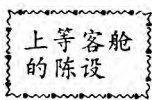 上等客舱
的陈设